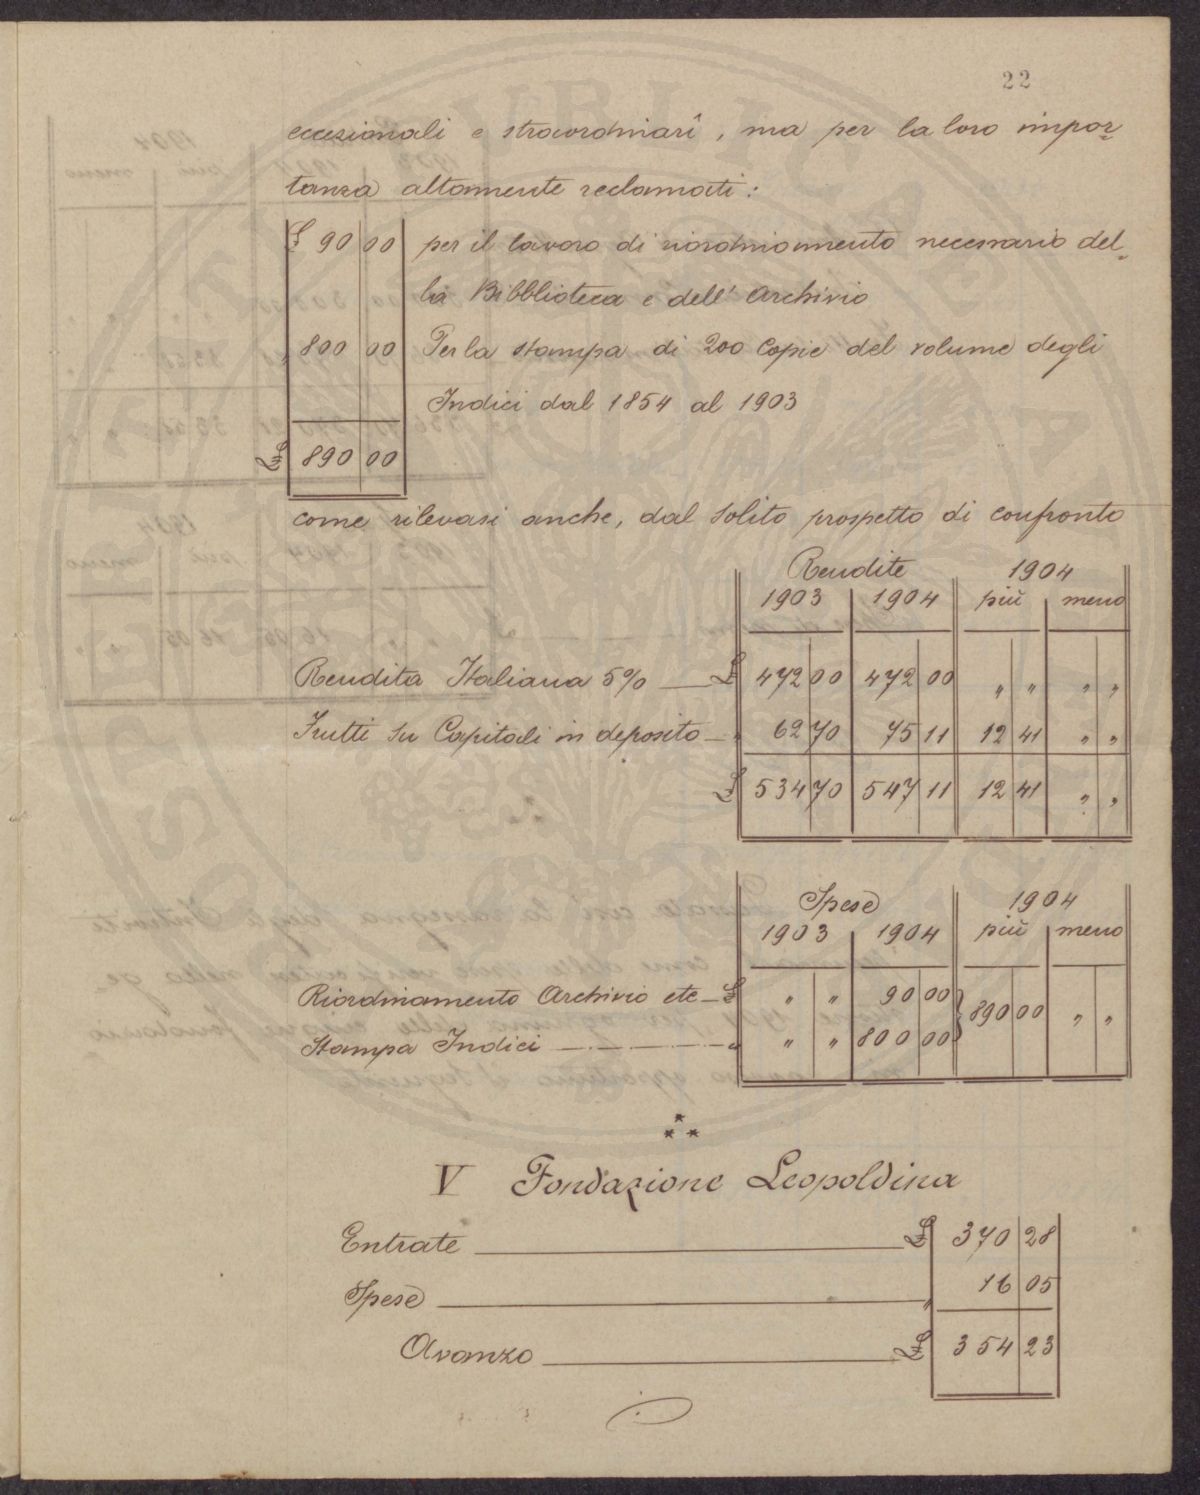 22
eccezionali e straordinarî, ma per la loro impor-
tanza altamente reclamati:
£ 90 00 per il lavoro di riordinamento necessario del-
la Bibblioteca e dell' Archivio
" 800 00 Per la stampa di 200 Copie del volume degli
Indici dal 1854 al 1903
£ 890 00
come rilevasi anche, dal solito prospetto di confronto
Rendite 1904
1903 1904 più meno
Rendita Italiana 5% £ 472 00 472 00 " " " "
Frutti su Capitali in deposito " 62 70 75 11 12 41 " "
£ 534 70 547 11 12 41 " "
Spese 1904
1903 1904 più meno
Riordinamento Archivio etc £ " " 90 00 } 890 00 " "
Stampa Indici " " " 800 00
V Fondazione Leopoldina
Entrate £ 370 28
Spese " 16 05
Avanzo £ 354 23